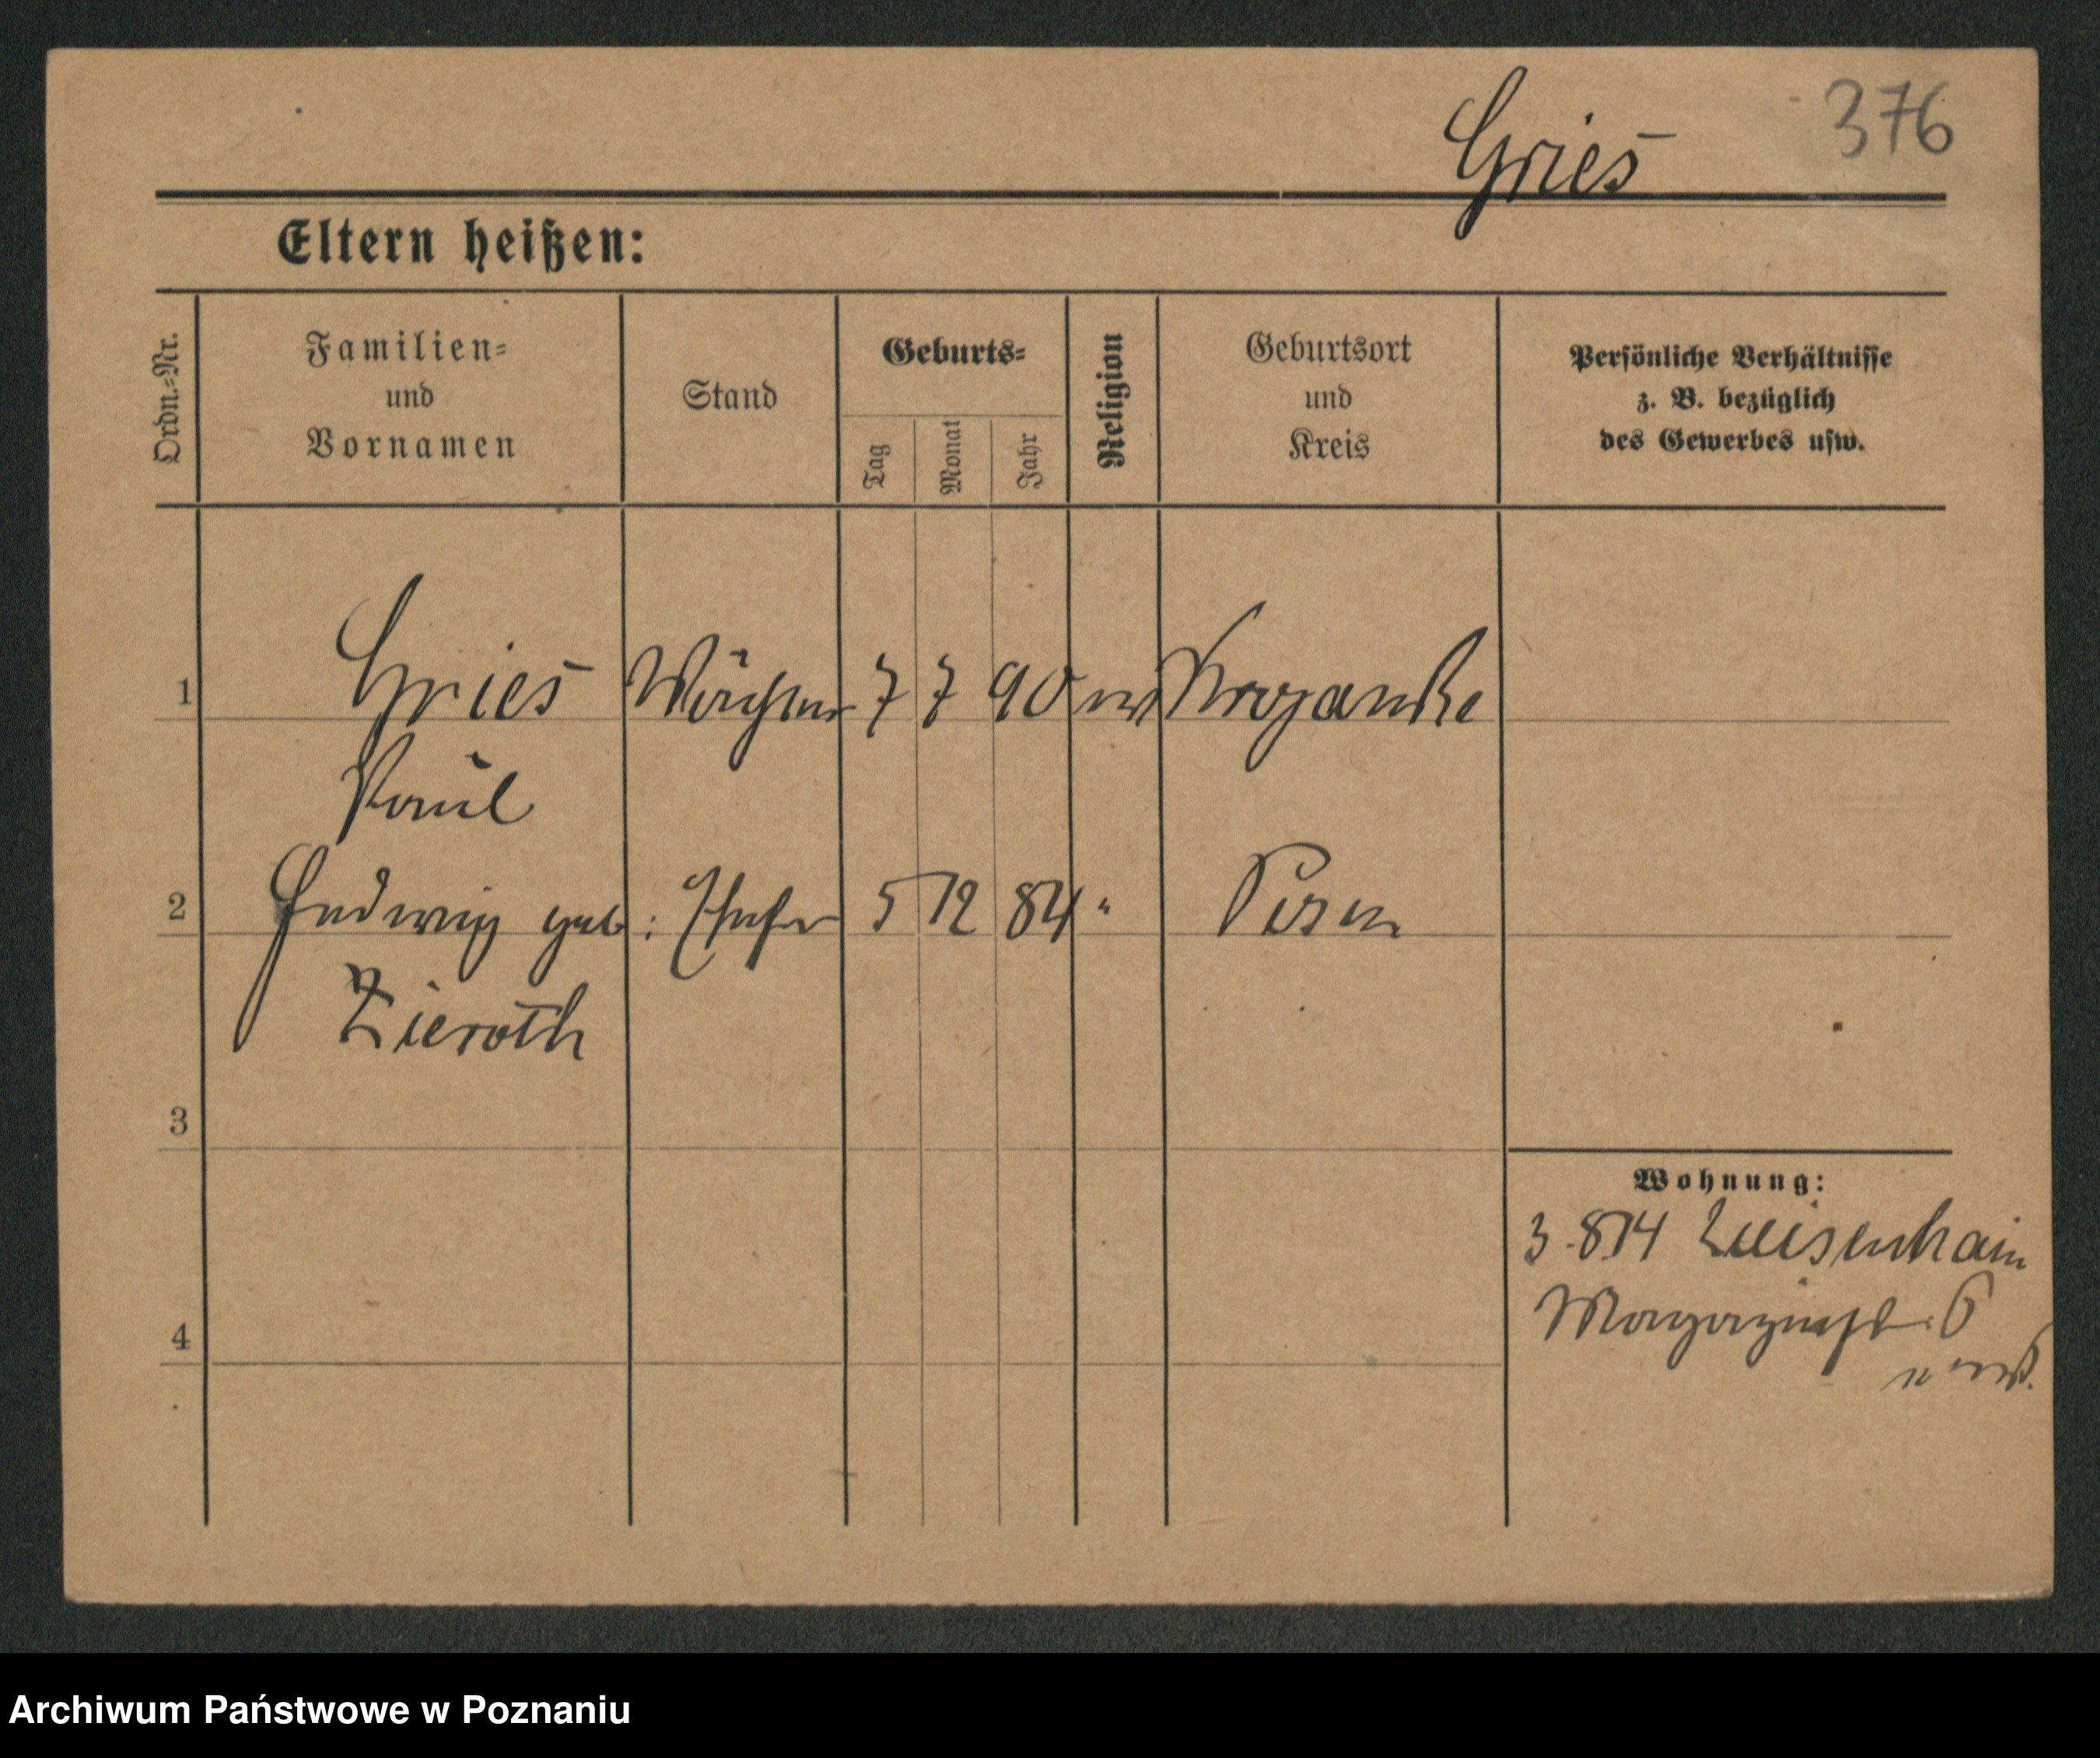 Gries 376
Eltern heißen:
Ordn.=Nr.
Familien=
und
Vornamen
Stand
Geburts=
Tag
Monat
Jahr
Religion
Geburtsort
und
Kreis
Persönliche Verhältnisse
z. B. bezüglich
des Gewerbes usw.
1 Gries Wächter 7 7 90 Krojanke
Paul
2 Hedwig geb: Ehefr 5 12 84 " Posen
Zieroth
3
4
Wohnung:
3.8 14 Luisenhain
Magazinstr. 6
Archiwum Państwowe w Poznaniu